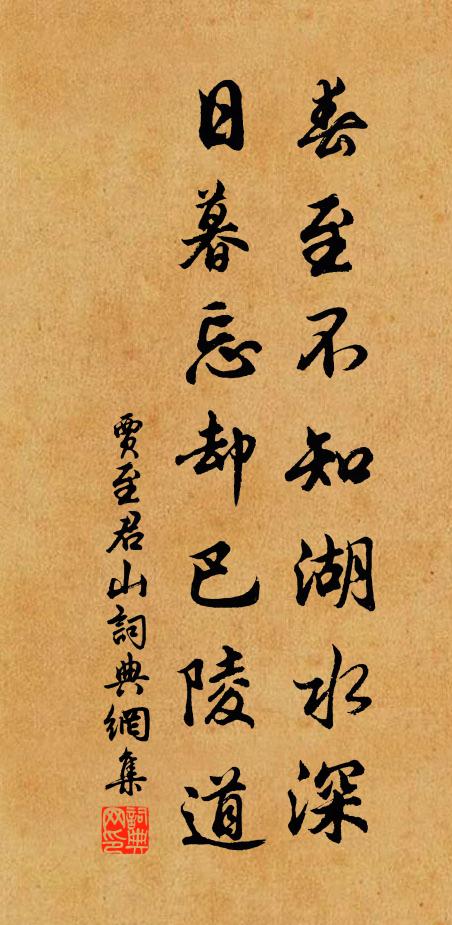 春至不知湖水深
日暮忘却巴陵道
賈至君山詞典網集
詞典
网印